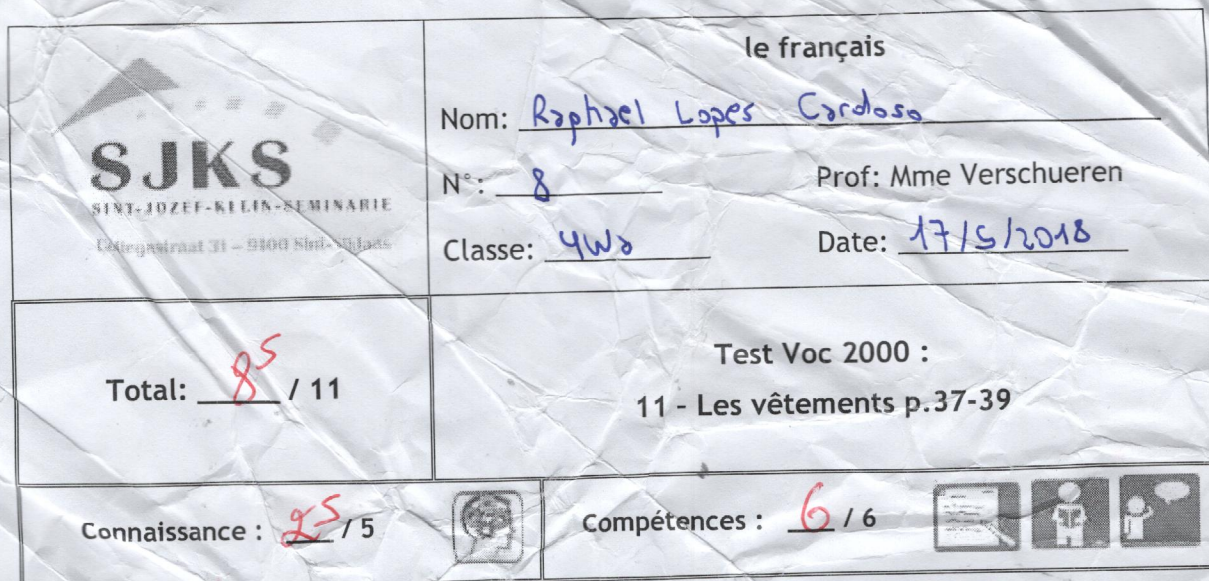 SJKS
SINT-JOZEF-KLEIN-SEMINARIE
Collegestraat 31 – 9100 Sint-Niklaas
le français
Nom: Raphael Lopes Cardoso
N°: 8 Prof: Mme Verschueren
Classe: 4Wa Date: 17/5/2018
Total: 8⁵ / 11
Test Voc 2000 :
11 - Les vêtements p.37-39
Connaissance : 2⁵ / 5
Compétences : 6 / 6